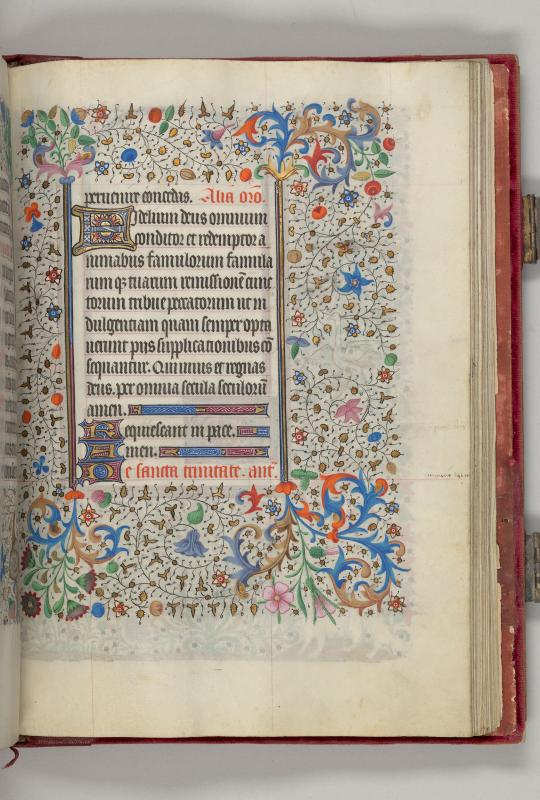 peruenire concedas. Alia orõ.
Fidelium deus omnium
conditor et redemptor a
nimabus famulorum famula
rum q3 tuarum remissionẽ cunc
torum tribue peccatorum ut in
dulgentiam quam semper opta
uerunt pijs supplicationibus cõ
sequantur. Qui uiuis et regnas
deus. per omnia secula seculorũ
amen.
Requiescant in pace.
Amen.
De sancta trinitate. ant̃.